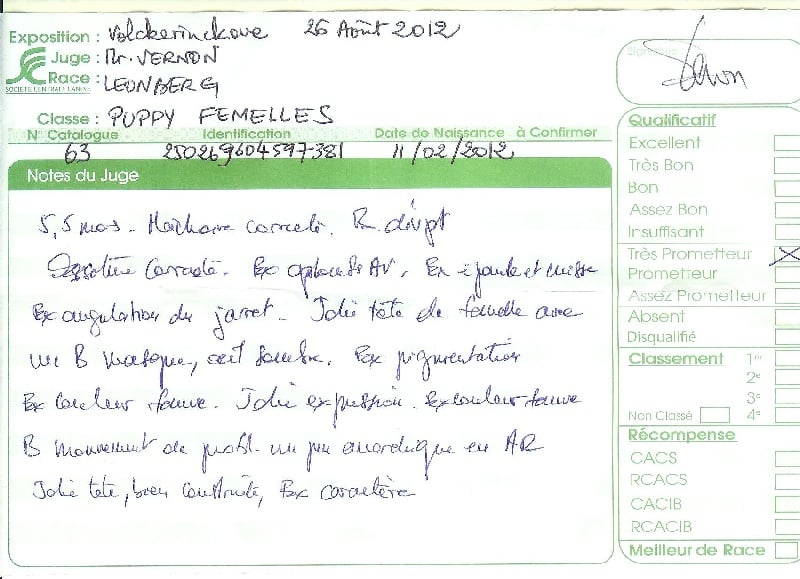 Exposition : Volckerinckove 26 Août 2012
Juge : Mr. VERNON
Race : LEONBERG
SOCIETE CENTRALE CANINE
Classe : PUPPY FEMELLES
N° Catalogue Identification Date de Naissance à Confirmer
63 250269604597381 11/02/2012
Notes du Juge
5,5 mois. Machoire correcte. B. dévpt
correcte. Ex aplombs AV. Ex épaule et
Ex angulation du jarret. Jolie tête de femelle avec
un B masque, œil sombre. Ex pigmentation
Ex couleur fauve. Jolie expression. Ex couleur fauve
B mouvement de profil un peu anarchique en AR
Jolie tete, bien construite, Ex caractère
Signature
Qualificatif
Excellent
Très Bon
Bon
Assez Bon
Insuffisant
Très Prometteur X
Prometteur
Assez Prometteur
Absent
Disqualifié
Classement 1er
2e
3e
Non Classé 4e
Récompense
CACS
RCACS
CACIB
RCACIB
Meilleur de Race